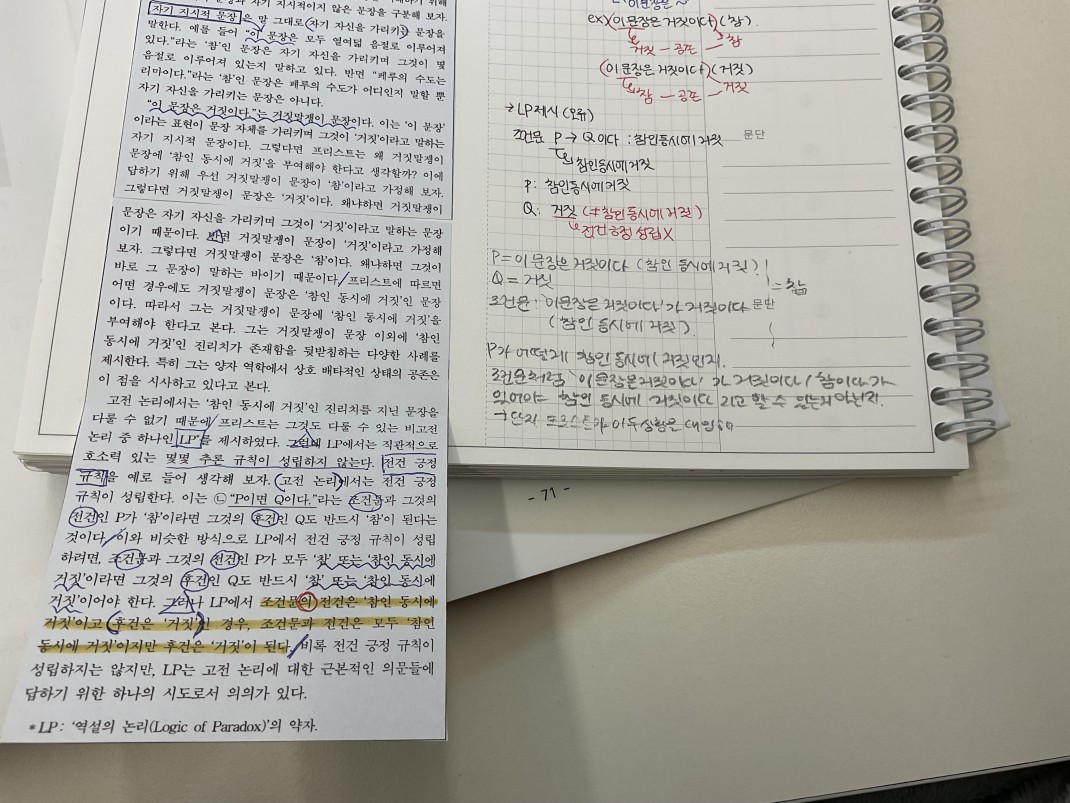 자기 지시적 문장은 말 그대로 자기 자신을 가리키는 문장을
말한다. 예를 들어 “이 문장은 모두 열여덟 음절로 이루어져
있다.”라는 ‘참’인 문장은 자기 자신을 가리키며 그것이 몇
음절로 이루어져 있는지 말하고 있다. 반면 “페루의 수도는
리마이다.”라는 ‘참’인 문장은 페루의 수도가 어디인지 말할 뿐
자기 자신을 가리키는 문장은 아니다.
“이 문장은 거짓이다.”는 거짓말쟁이 문장이다. 이는 ‘이 문장’
이라는 표현이 문장 자체를 가리키며 그것이 ‘거짓’이라고 말하는
자기 지시적 문장이다. 그렇다면 프리스트는 왜 거짓말쟁이
문장에 ‘참인 동시에 거짓’을 부여해야 한다고 생각할까? 이에
답하기 위해 우선 거짓말쟁이 문장이 ‘참’이라고 가정해 보자.
그렇다면 거짓말쟁이 문장은 ‘거짓’이다. 왜냐하면 거짓말쟁이
문장은 자기 자신을 가리키며 그것이 ‘거짓’이라고 말하는 문장
이기 때문이다. 반면 거짓말쟁이 문장이 ‘거짓’이라고 가정해
보자. 그렇다면 거짓말쟁이 문장은 ‘참’이다. 왜냐하면 그것이
바로 그 문장이 말하는 바이기 때문이다. 프리스트에 따르면
어떤 경우에도 거짓말쟁이 문장은 ‘참인 동시에 거짓’인 문장
이다. 따라서 그는 거짓말쟁이 문장에 ‘참인 동시에 거짓’을
부여해야 한다고 본다. 그는 거짓말쟁이 문장 이외에 ‘참인
동시에 거짓’인 진리치가 존재함을 뒷받침하는 다양한 사례를
제시한다. 특히 그는 양자 역학에서 상호 배타적인 상태의 공존은
이 점을 시사하고 있다고 본다.
고전 논리에서는 ‘참인 동시에 거짓’인 진리치를 지닌 문장을
다룰 수 없기 때문에 프리스트는 그것도 다룰 수 있는 비고전
논리 중 하나인 LP*를 제시하였다. 그런데 LP에서는 직관적으로
호소력 있는 몇몇 추론 규칙이 성립하지 않는다. 전건 긍정
규칙을 예로 들어 생각해 보자. 고전 논리에서는 전건 긍정
규칙이 성립한다. 이는 ㉡ “P이면 Q이다.”라는 조건문과 그것의
전건인 P가 ‘참’이라면 그것의 후건인 Q도 반드시 ‘참’이 된다는
것이다. 이와 비슷한 방식으로 LP에서 전건 긍정 규칙이 성립
하려면, 조건문과 그것의 전건인 P가 모두 ‘참’ 또는 ‘참인 동시에
거짓’이라면 그것의 후건인 Q도 반드시 ‘참’ 또는 ‘참인 동시에
거짓’이어야 한다. 그러나 LP에서 조건문의 전건은 ‘참인 동시에
거짓’이고 후건은 ‘거짓’인 경우, 조건문과 전건은 모두 ‘참인
동시에 거짓’이지만 후건은 ‘거짓’이 된다. 비록 전건 긍정 규칙이
성립하지는 않지만, LP는 고전 논리에 대한 근본적인 의문들에
답하기 위한 하나의 시도로서 의의가 있다.
*LP: ‘역설의 논리(Logic of Paradox)’의 약자.
ex) (이 문장은 거짓이다) (참).
거짓 — 공존 — 참
(이 문장은 거짓이다) (거짓)
참 — 공존 — 거짓
→ LP 제시 (오류)
조건문 P → Q이다 : 참인 동시에 거짓 문단
참인 동시에 거짓
P: 참인 동시에 거짓
Q: 거짓 (≠참인 동시에 거짓)
전건 긍정 성립 X
P = 이 문장은 거짓이다 (참인 동시에 거짓)
Q = 거짓 = 참
조건문: '이 문장은 거짓이다'가 거짓이다 문단
(참인 동시에 거짓).
P가 어떻게 참인 동시에 거짓인지.
조건문처럼 '이 문장은 거짓이다'가 거짓이다 / 참이다가
있어야 참인 동시에 거짓이다 라고 할 수 있는지 아닌지.
- 71 -